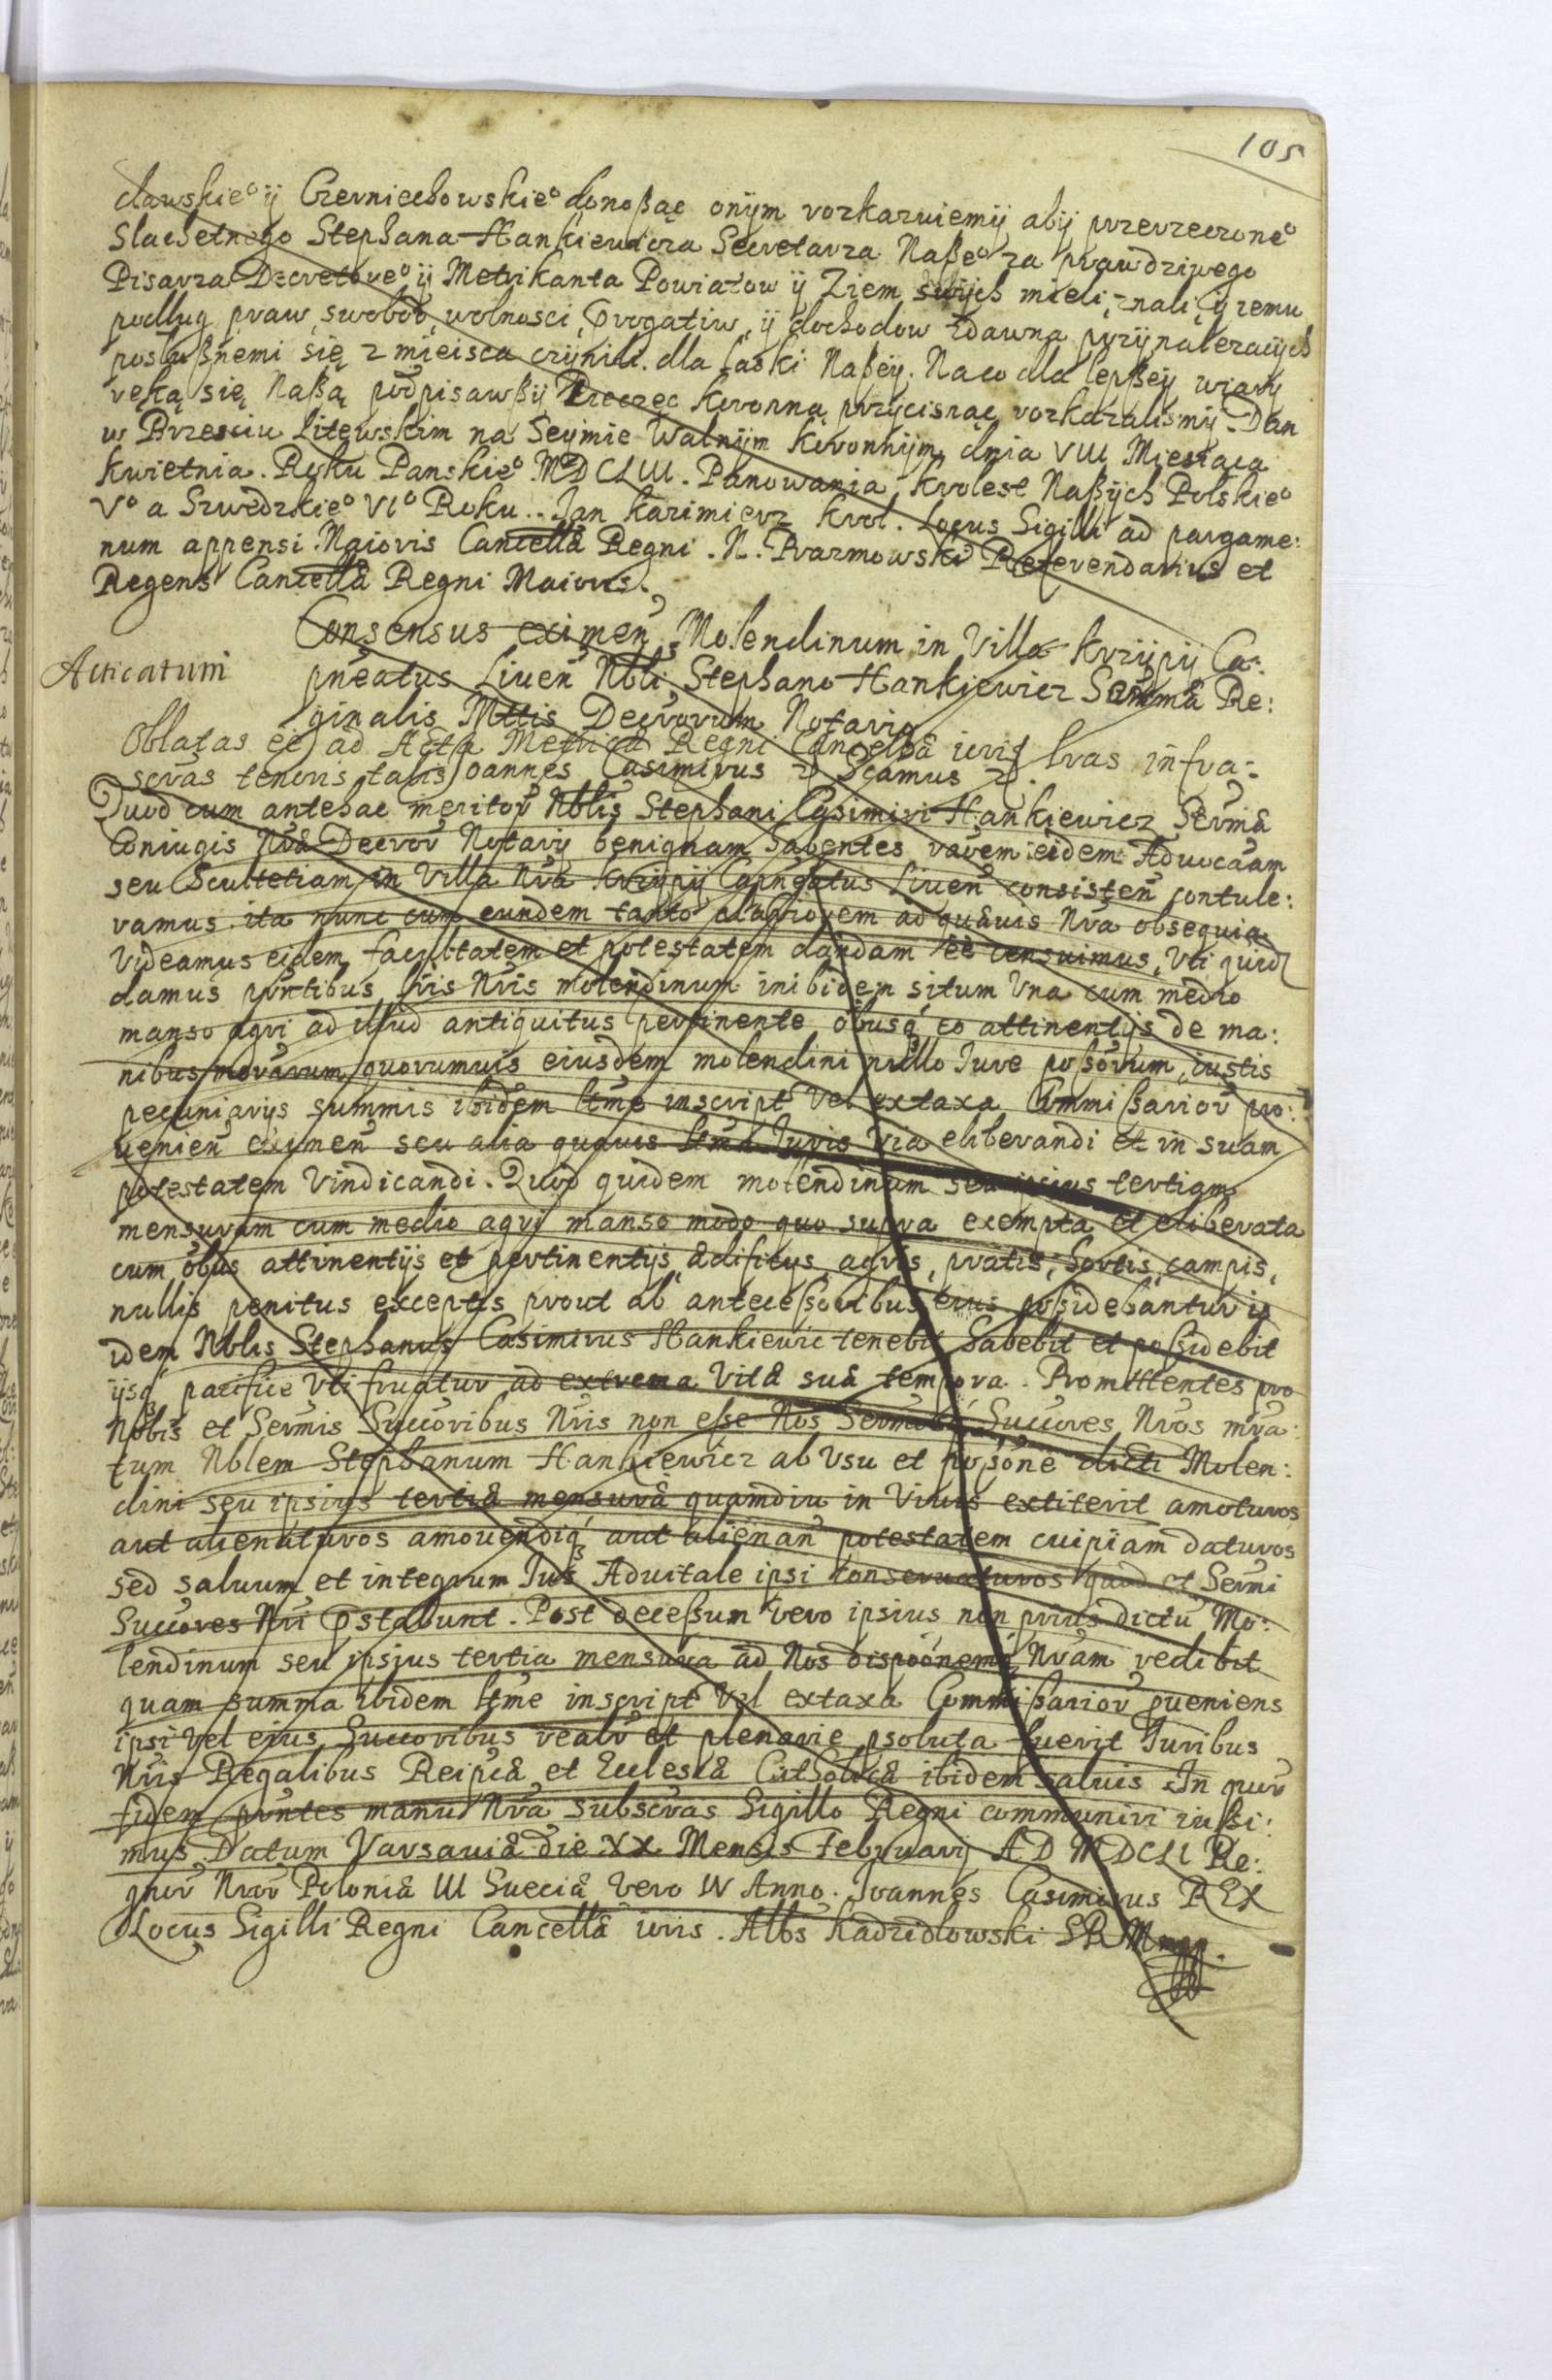 105
cławskieº ÿ Czerniechowskieº donoßąc onÿm rozkazuiemÿ abÿ przerzeczoneº
Slachetnego Stephana Hankiewicza Secretarza Naßeº za prawdziwego
Pisarza Decretoveº ÿ Metrikanta Powiatow ÿ Ziem swÿch mieli, znali, ÿ temu
podług praw, swobod, wolnosci, Prorogatiw, ÿ dochodow zdawna przÿnalezacÿch
posłußnemi się z mieisca czÿnili. dla łaski Naßeÿ. Na co dla lepßeÿ wiarÿ
ręką się Naßą podpisawßÿ Pieczęc koronną przÿcisnąc rozkazalismÿ. Dan
w Brzesciu Litewskim na Seÿmie Walnÿm koronnÿm, dnia VIII Miesiąca
kwietnia. Roku Panskieº MDCLIII. Panowania krolest Naßÿch Polskieº
Vº a Szwedzkieº VIº Roku. Jan kazimierz krol. Locus Sigilli ad pargame:
num appensi Maioris Cancellæ Regni. N. Prazmowski Referendarius et
Regens Cancellæ Regni Maioris.
Consensus eximen Molendinum in Villa Krzÿpÿ Ca:
Acticatum
pneatus Liuen Nbli Stephano Hankiewicz Sermæ Re:
ginalis Mttis Decrorum Notario
Oblatas ee ad Acta Metricæ Regni Cancellæ ioris lras infra:
scras tenoris talis Joannes Casimirus Scamus
Quod cum antehac meritor Nblis Stephani Casimiri Hankiewicz Sermæ
Coniugis Nræ Decror Notarij benignam habentes raoem eidem Aduocaam
seu Scultetiam in Villa Nra Krzÿpÿ Capneatus Liuen consisten contule:
ramus ita nunc cum eundem tanto alacriorem ad quæuis Nra obsequia
Videamus eidem facultatem et potestatem dandam ee censuimus, Vti quid
damus pntibus lris Nris molendinum inibidem situm Vna cum medio
manso agri ad illud antiquitus pertinente, oibusq eo attinentijs de ma:
nibus quorumuis eiusdem molendini nullo Iure poßorum, iustis
pecuniarijs summis ibidem ltme inscript Vel extaxa Commißarior pro:
uenien eximen seu alia quauis ltma Iuris Via eliberandi et in suam
potestatem Vindicandi. Quod quidem molendinum seu ipsius tertiam
mensuram cum medio agri manso modo quo supra exempta et eliberata
cum oibus attinentijs et pertinentijs, ædificijs, agris, pratis, hortis, campis,
nullis penitus exceptis prout ab anteceßoribus eius poßidebantur is
idem Nblis Stephanus Casimirus Hankiewic tenebit habebit et poßidebit
ijsq pacifice Vti fruatur ad extrema Vitæ suæ tempora. Promittentes pro
Nobis et Sermis Succoribus Nris non eße Nos Succores Nros mra:
tum Nblem Stephanum Hankiewicz ab Vsu et poßone dicti Molen:
dini seu ipsius tertiæ mensuræ quamdiu in Viuis extiterit amoturos
aut alienaturos amouendiq aut alienan potestatem cuipiam daturos
sed saluum et integrum Ius Aduitale ipsi conseruaturos quod et Sermi
Succores Nri pstabunt. Post deceßum vero ipsius non prius dictu Mo:
lendinum seu ipsius tertia mensura ad Nos Nram redibit
quam summa ibidem ltme inscript Vel extaxa Commißarior pueniens
ipsi vel eius Succoribus realr et plenarie psoluta fuerit Iuribus
Nris Regalibus Reipcæ et Eclesiæ Catholicæ ibidem saluis. In quor
fidem pntes manu Nra subscras Sigillo Regni communiri iußi:
mus. Datum Varsauiæ die XX Mensis Februarij AD MDCLI Re:
gnor Nror Poloniæ III Sueciæ Vero IV Anno. Ioannes Casimirus REX
Locus Sigilli Regni Cancellæ ioris. Albs Kadzidlowski SRM mpp.